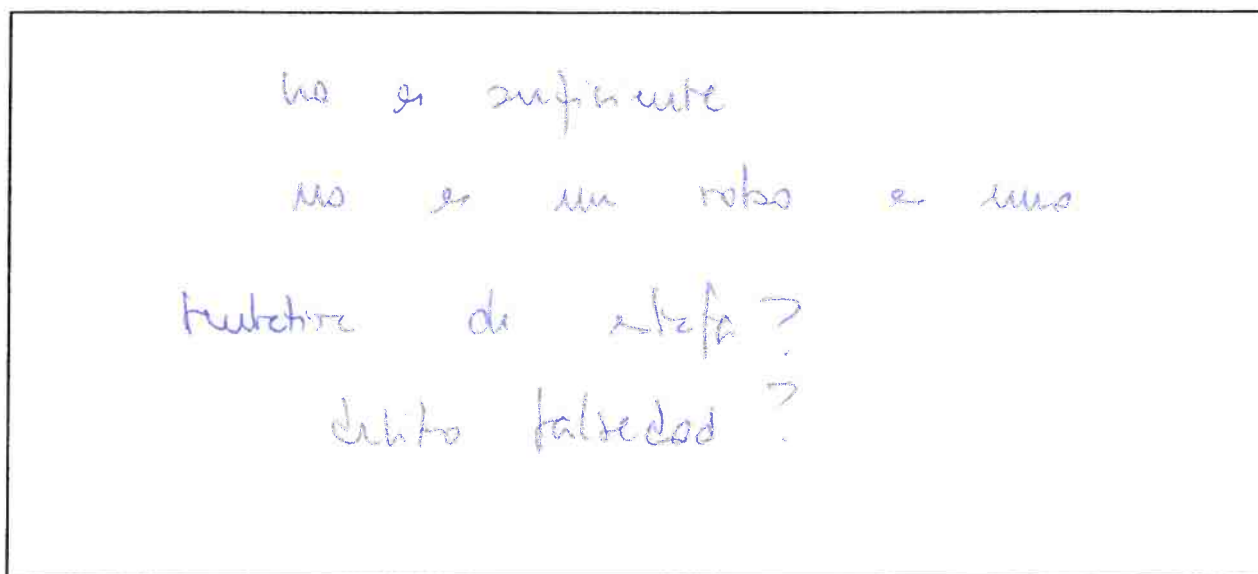 no es suficiente
no es un robo es una
tentativa de estafa?
delito falsedad?